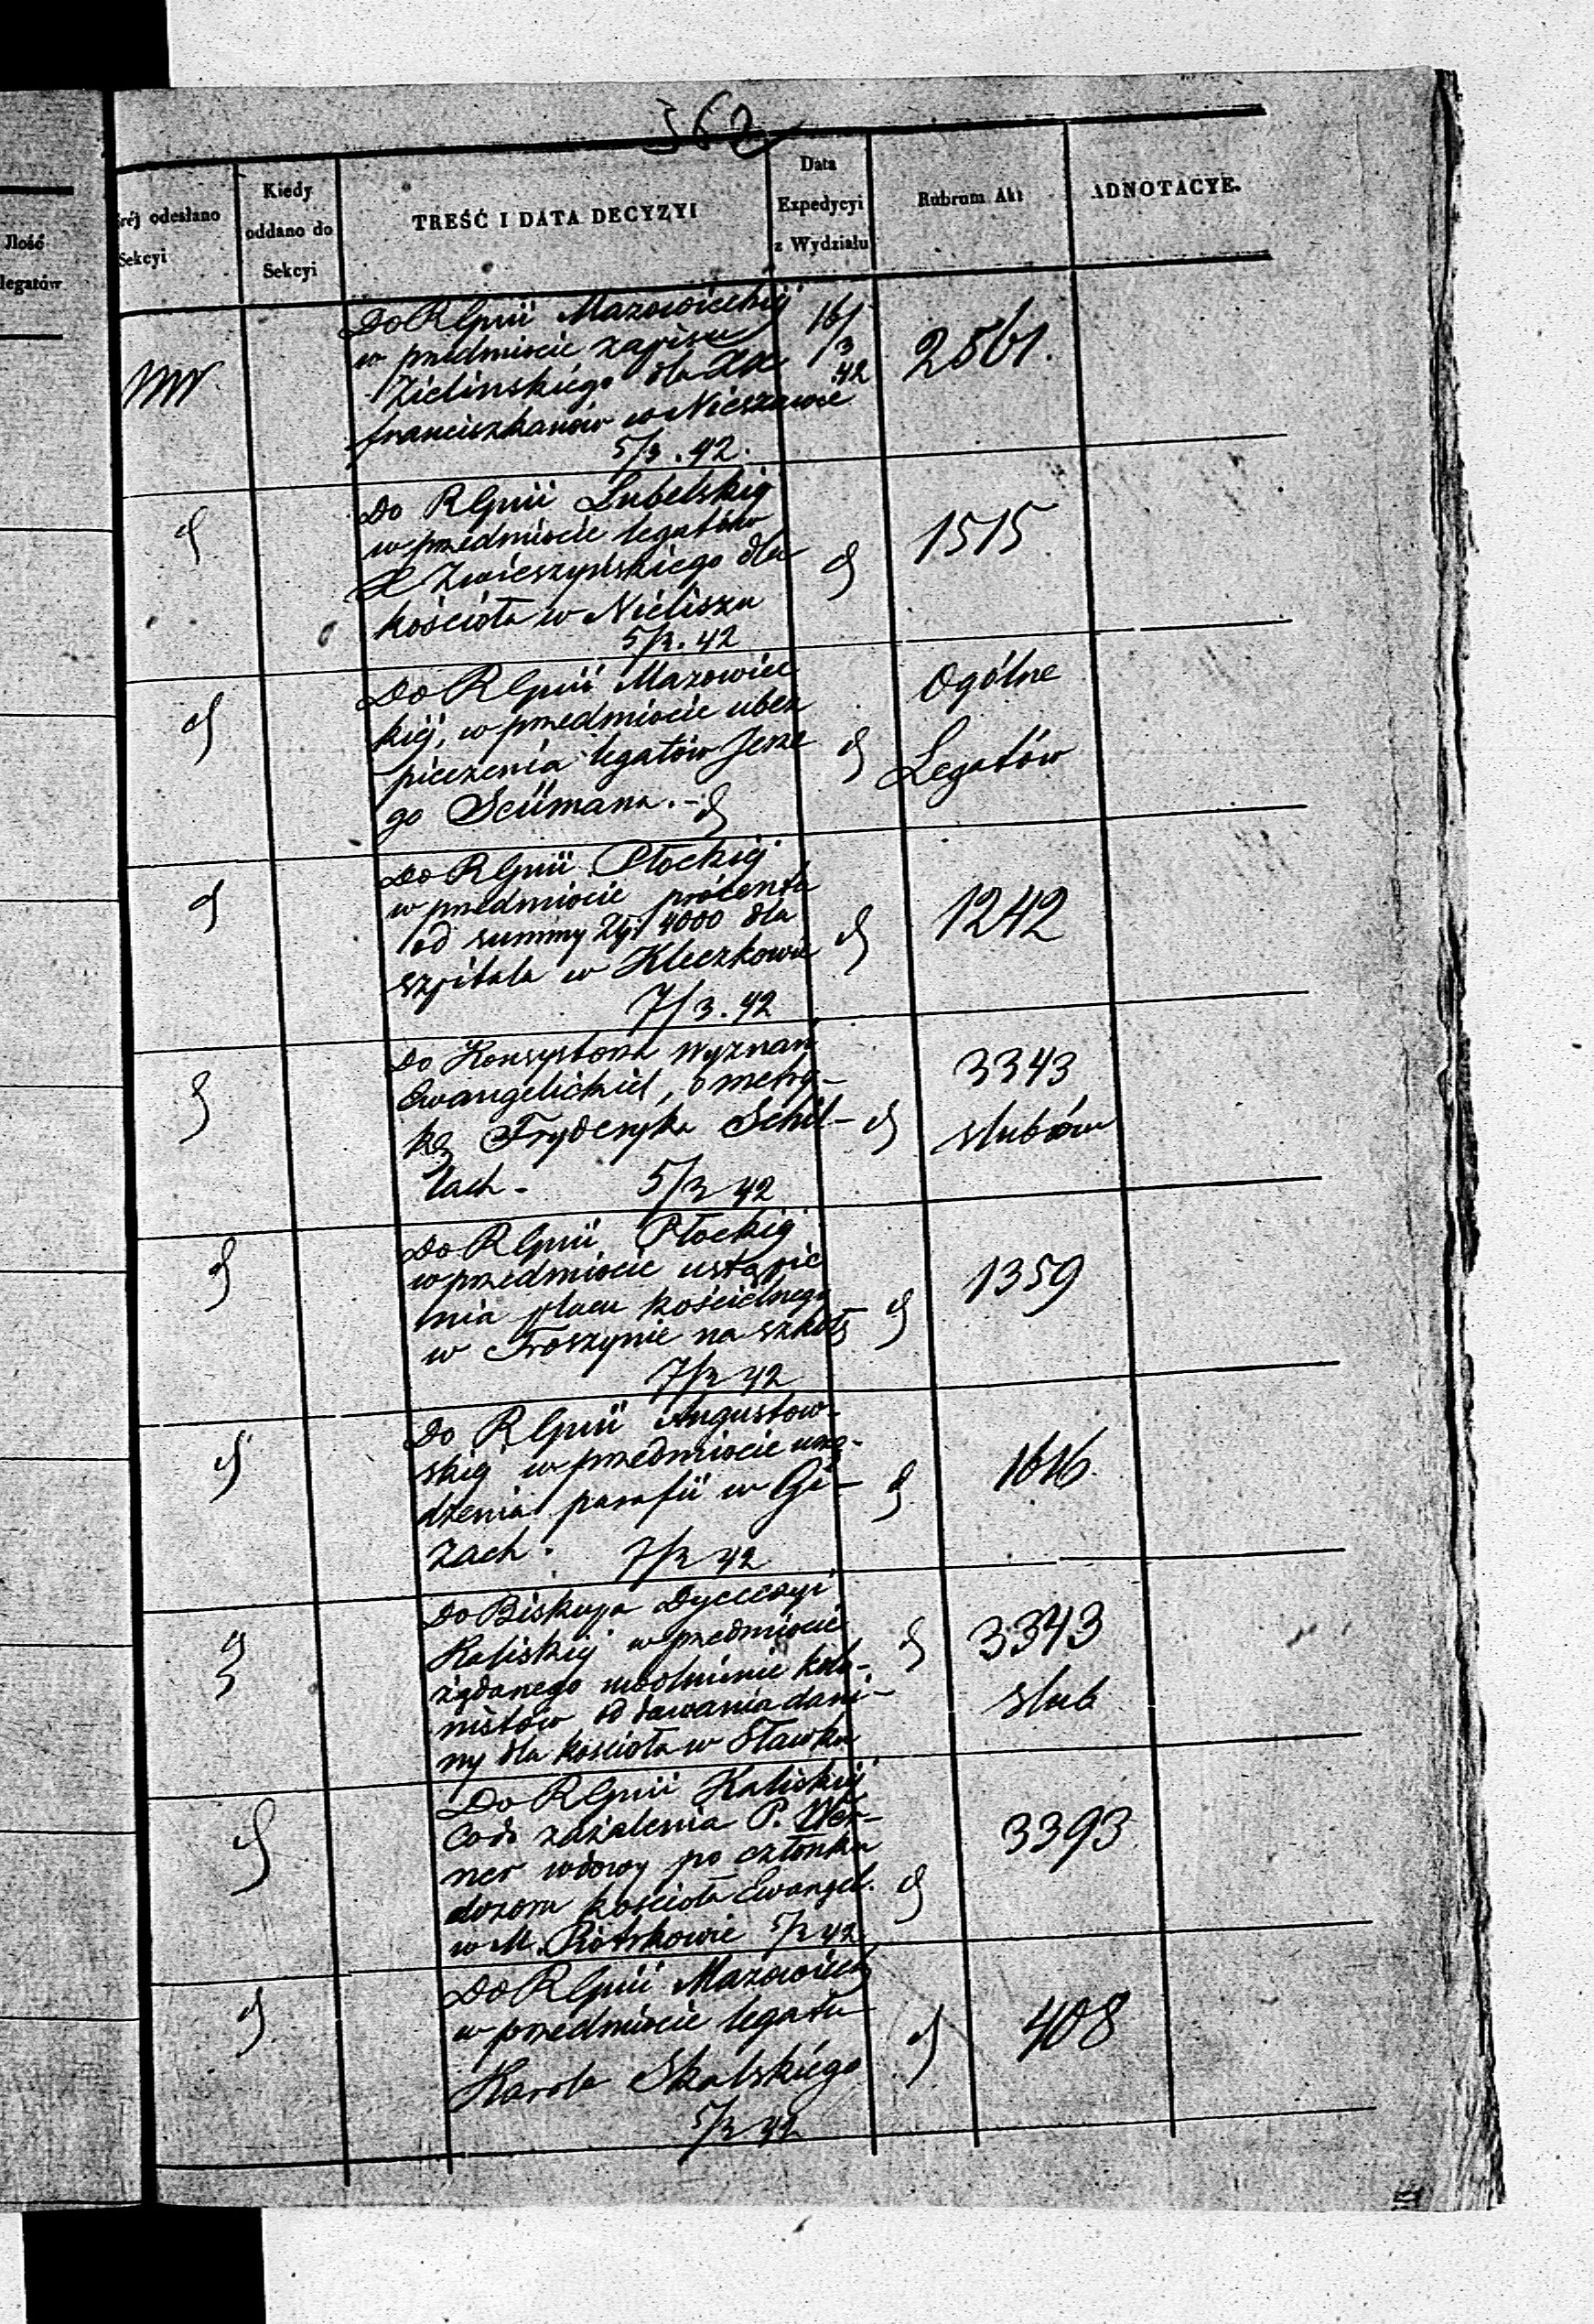 362
Ilość
legatów
rój odesłano
Sekcyi
Kiedy
oddano do
Sekcyi
TREŚĆ I DATA DECYZYI
Data
Expedycyi
z Wydziału
Rubrum Akt
ADNOTACYE.
Do R Gnii Mazowieckiéj
w przedmiocie zapisu
Zielinskiégo dla XX
franciszkanów w Nieszawie
5/3. 42.
16/
/3
42
2561.
Do R Gnii Lubelskiéj
w przedmiocie legatów
X Zwieszyńskiego dla
kościoła w Nieliszu
5/3. 42
d
1515
Do R Gnii Mazowiec
kiéj, w przedmiocie ubez
pieczenia legatów Jerze
go Scümana. - d
d
Ogólne
Legatów
Do R Gnii Płockiéj
w przedmiocie procentu
od summy Złp. 4000 dla
szpitala w Kleczkowie
7/3. 42
d
1242
Do Konsystorza Wyznań
Ewangelickich, o metry-
kę Fryderyka Schil-
lach - 5/3 42
d
3343
slubów
Do R Gnii Płockiéj
w przedmiocie ustąpie
nia placu kościelnego
w Troszynie na szkołę
7/3 42
d
1359
Do R Gnii Augustow-
skiéj w przedmiocie urzą-
dzenia parafii w Gi-
zach. 7/3 42
d
1616
Do Biskupa Dyecezyi
Kaliskiéj w przedmiocie
żądanego uwolnienie kolo-
nistów od dawania dani-
ny dla kościoła w Sławku
d
3343
slub
Do R Gnii Kaliskiéj
Co do zażalenia P. Wer-
ner wdowy po członku
dozoru kościoła Ewangel.
w M. Piotrkowie 5/3 42
d
3393
Do R Gnii Mazowieck
w przedmiocie legatu
Karola Skalskiégo
5/3 42
d
408